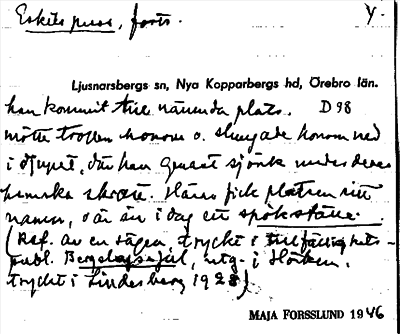 Eskils puss, forts. Y.
Ljusnarsbergs sn, Nya Kopparbergs hd, Örebro län.
han kommit till nämnda plats. D 98
mötte trollen honom o. slungade honom ned
i djupet, där han genast sjönk under deras
hemska skratt. Härav fick platsen sitt
namn, o är än i dag ett spökställe.
(Ref. av en sägen, tryckt i tillfällighets-
publ. Bergslagsgillet, utg. i Hörken.
tryckt i Lindesberg 1928)
MAJA FORSSLUND 1946